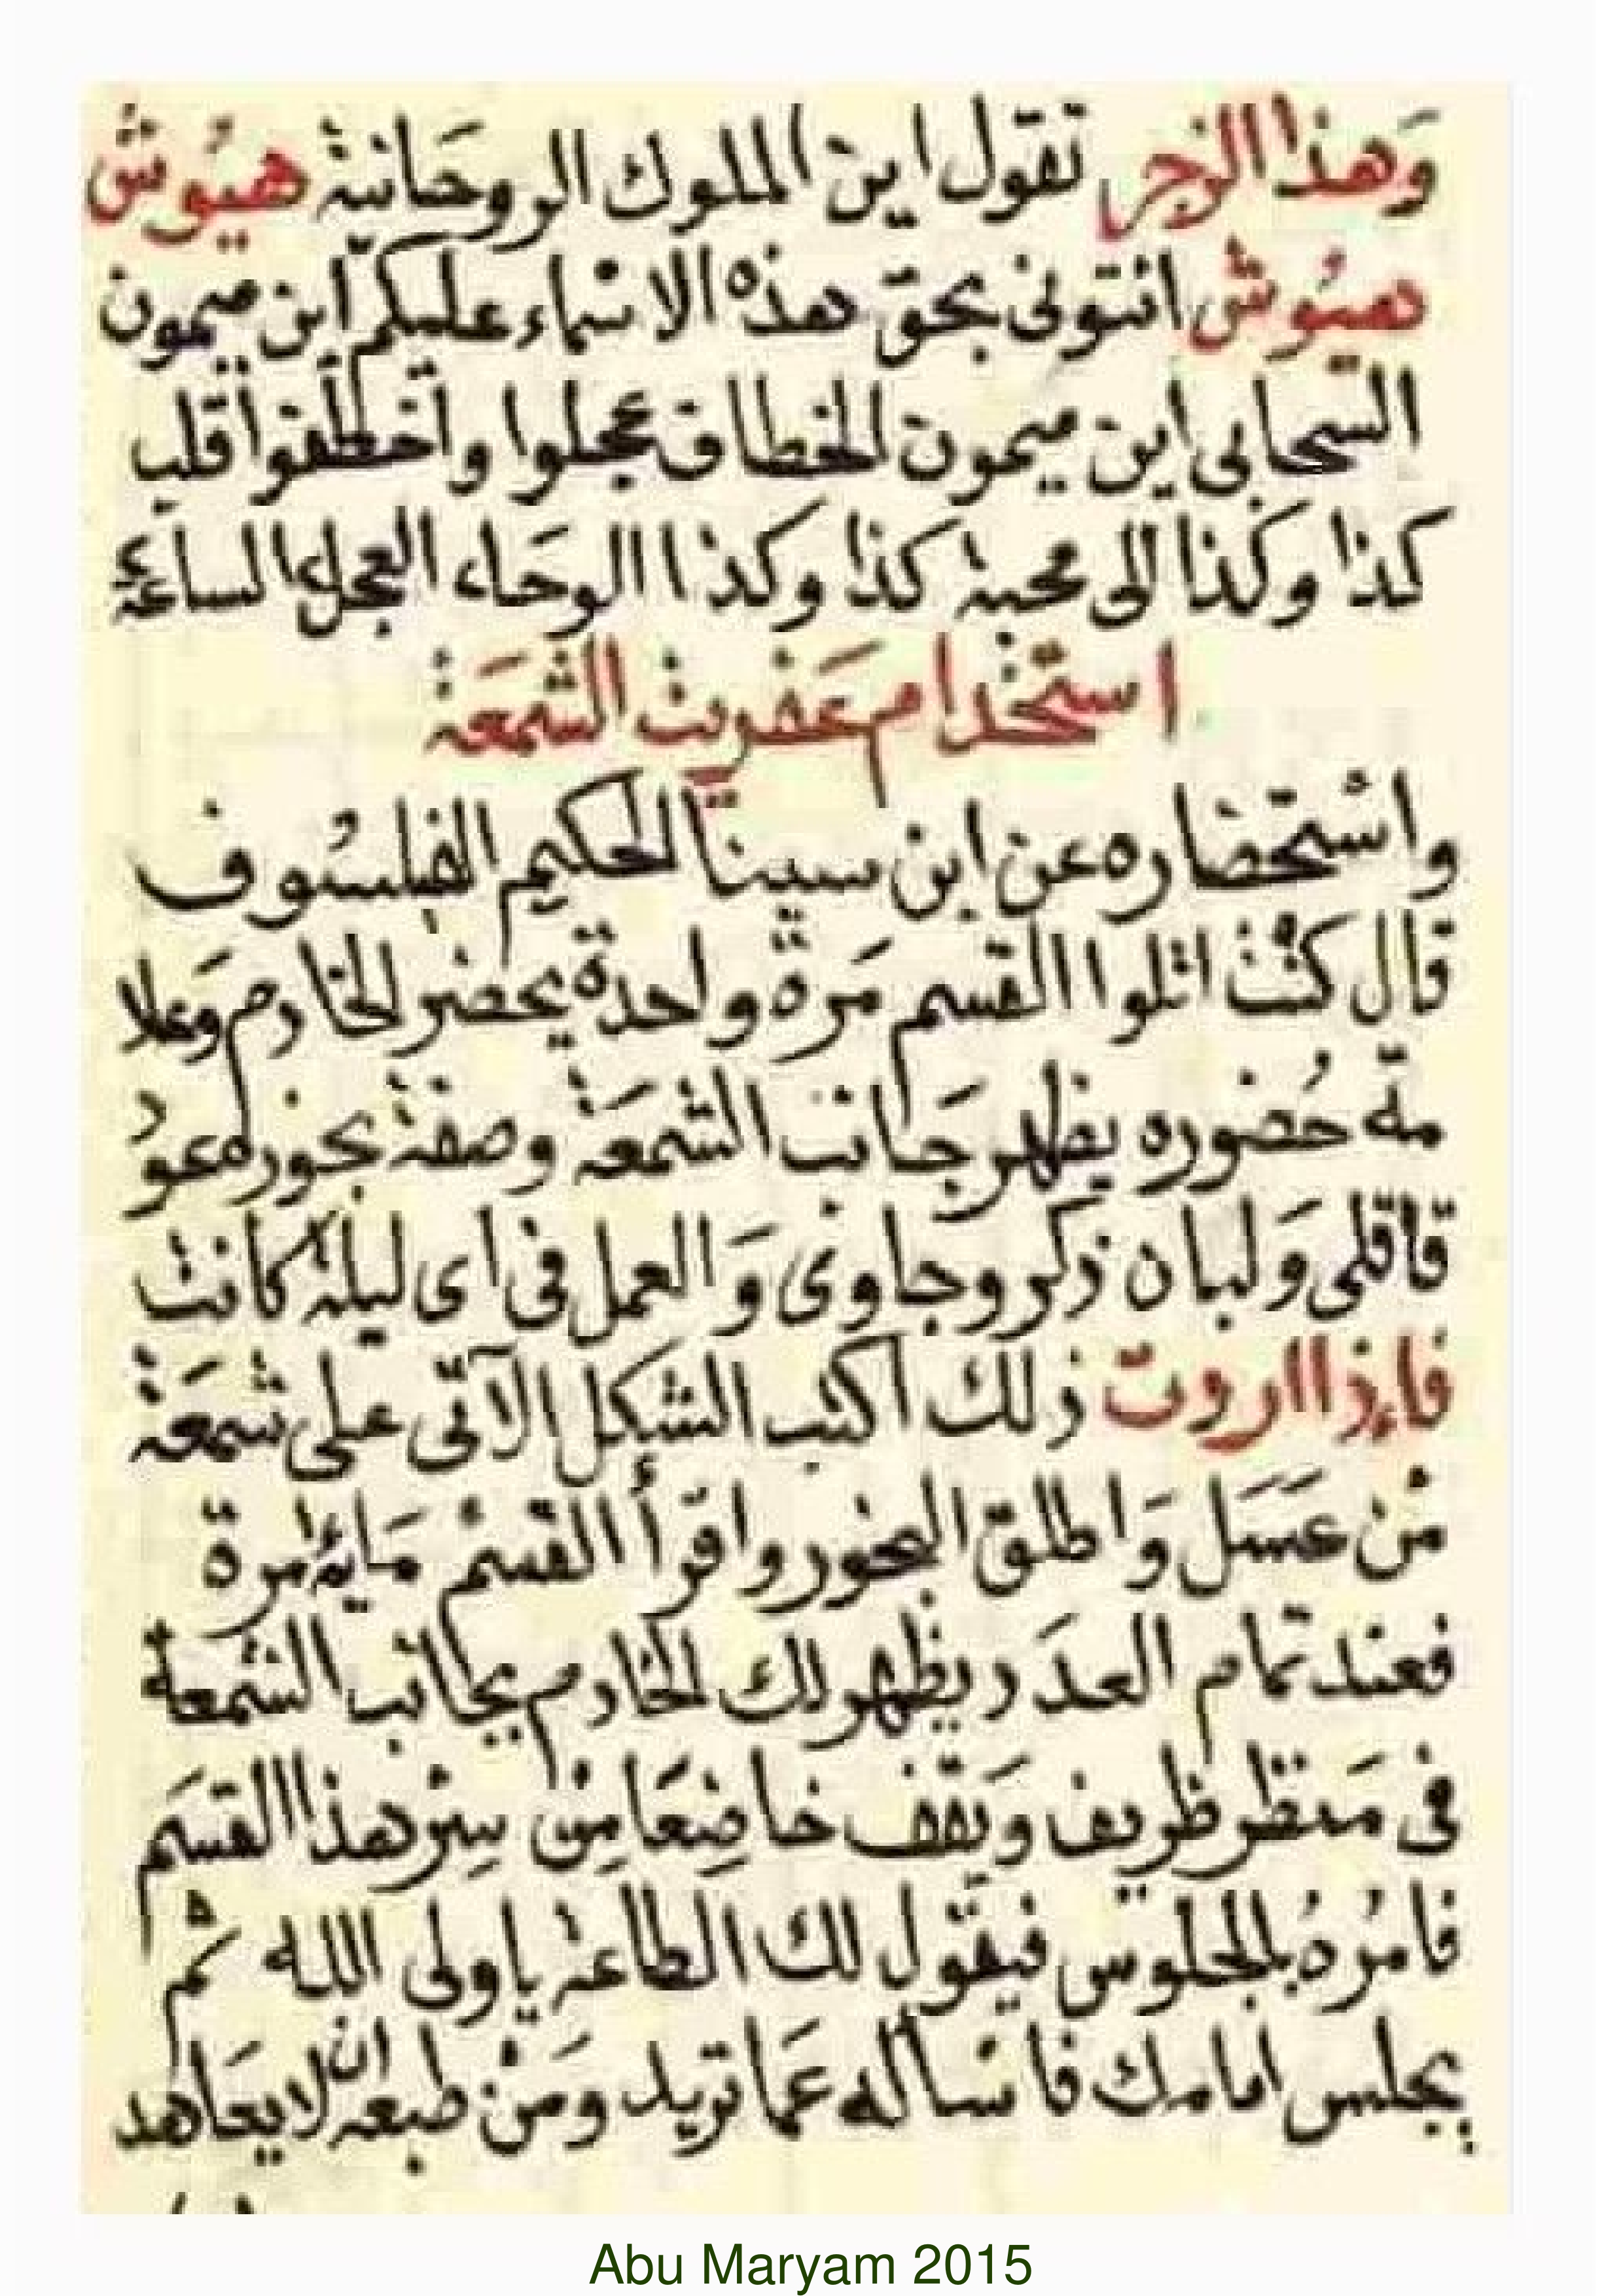 وَهذا الزجر تقول اين الملوك الروحَانية هيُوش
هيُوش ائتونى بحق هذه الاسماء عليكم اين ميمون
السحابى اين ميمون الخطاف عجلوا واخطفوا قلب
كذا وكذا الى محبة كذا وكذا الوحَاء العجل الساعَة
استخدام عَفريت الشمَعَة
واستحضاره عن ابن سينا الحكيم الفيلسُوف
قال كنت اتلوا القسم مَرة واحدة يحضر الخادم وَعلا
مة حُضوره يظهر جَانب الشمَعَة وصفة بخوره عوُد
قاقلى وَلبان ذكر وجاوى وَالعمل فى اى ليلة كانت
فاءذا اردت ذلك اكتب الشكل الآتى على شمَعَة
من عسَل وَاطلق البخور واقرأ القسم مَاية مرة
فعند تمام العدَد يظهر لك الخادم بجانب الشمعة
فى مَنظر ظريف وَيقف خاضِعَا مِنْ سِر هذا القسَم
فامُرهُ بالجلوس فيقول لك الطاعة يا ولى الله ثم
يجلس امامك فاسأله عمَا تريد وَمَنْ طبعه ان لا يعَاهد
Abu Maryam 2015